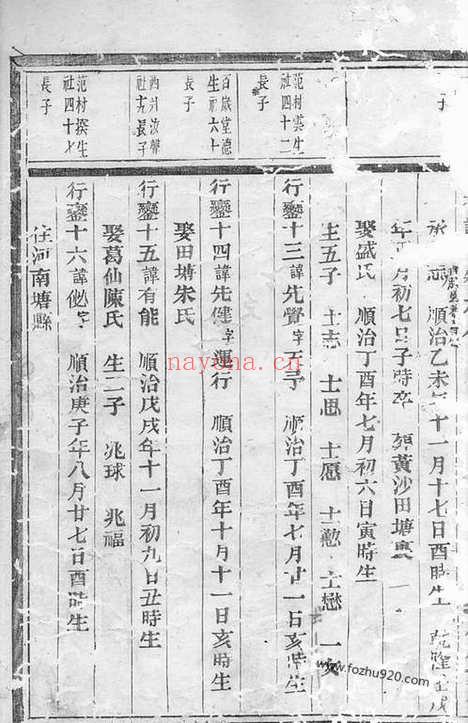 子
順治乙未年十一月十七日酉時生 乾隆
月初七日子時卒 葬黃沙田塘裏
娶盛氏 順治丁酉年七月初六日寅時生
生五子 士志 士思 士愿 士懋 一女
范村
生
社四十二
長子
行鑾十三諱先覺字五 順治丁酉年七月廿一日亥時生
百歲堂德
生社六十
長子
行鑾十四諱先健字運行 順治丁酉年十月十一日亥時生
娶田塘朱氏
長子
行鑾十五諱有能 順治戊戌年十一月初九日丑時生
娶葛仙陳氏 生二子 兆球 兆福
范村
生
社四十七
長子
行鑾十六諱 字 順治庚子年八月廿七日酉時生
住河南塘縣
nayona.cn
www.fozhu920.com